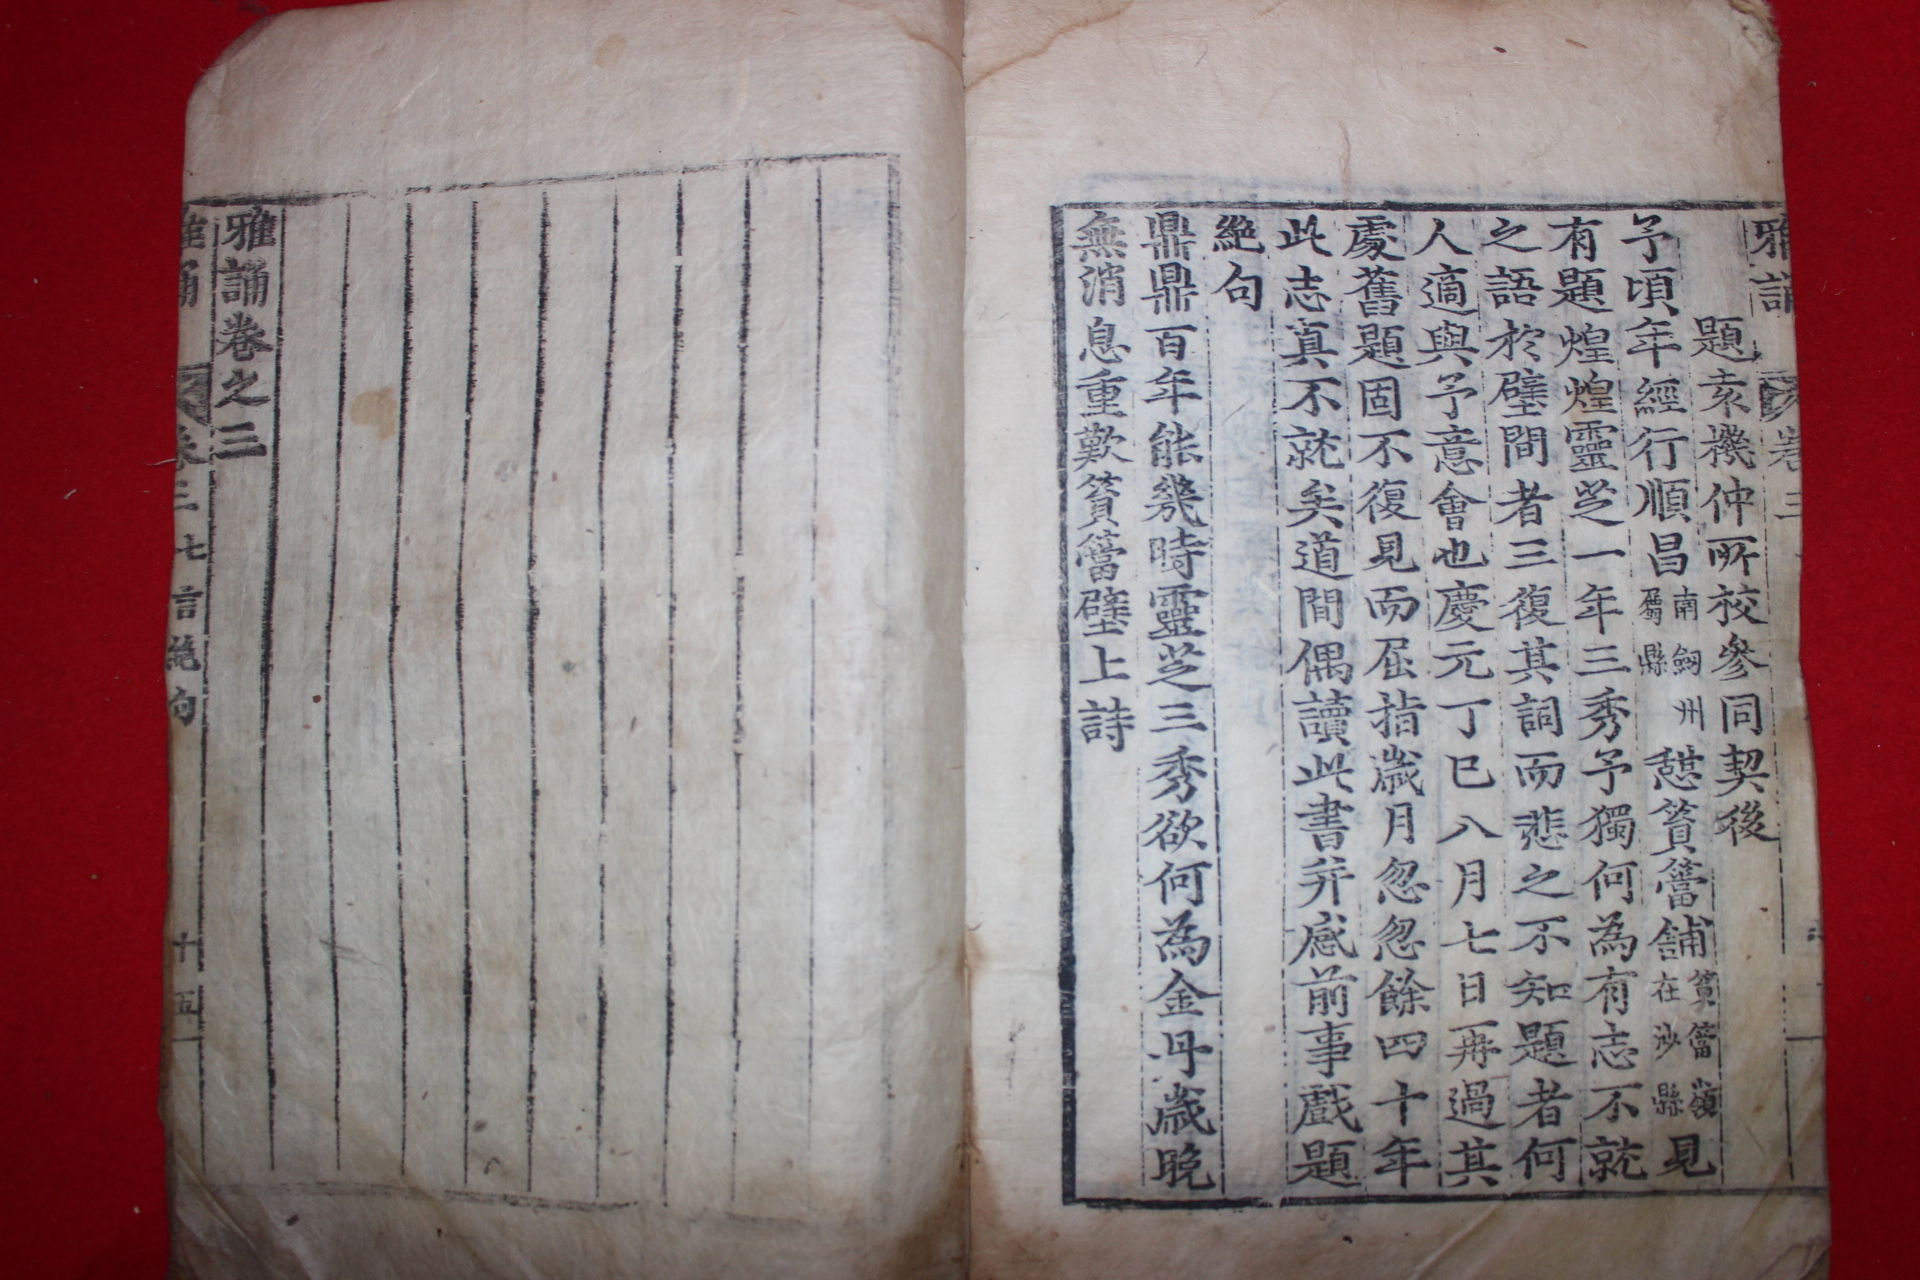 雅誦
卷三
題袁機仲所校參同契後
予頃年經行順昌南劒州屬縣憇篔簹舖篔簹嶺在沙縣見
有題煌煌靈芝一年三秀予獨何為有志不就
之語於壁間者三復其詞而悲之不知題者何
人適與予意會也慶元丁巳八月七日再過其
處舊題固不復見而屈指歲月忽忽餘四十年
此志真不就矣道間偶讀此書并感前事戲題
絶句
鼎鼎百年能幾時靈芝三秀欲何為金丹歲晚
無消息重歎篔簹壁上詩
雅誦卷之三
雅誦
卷三
七言絶句
十五